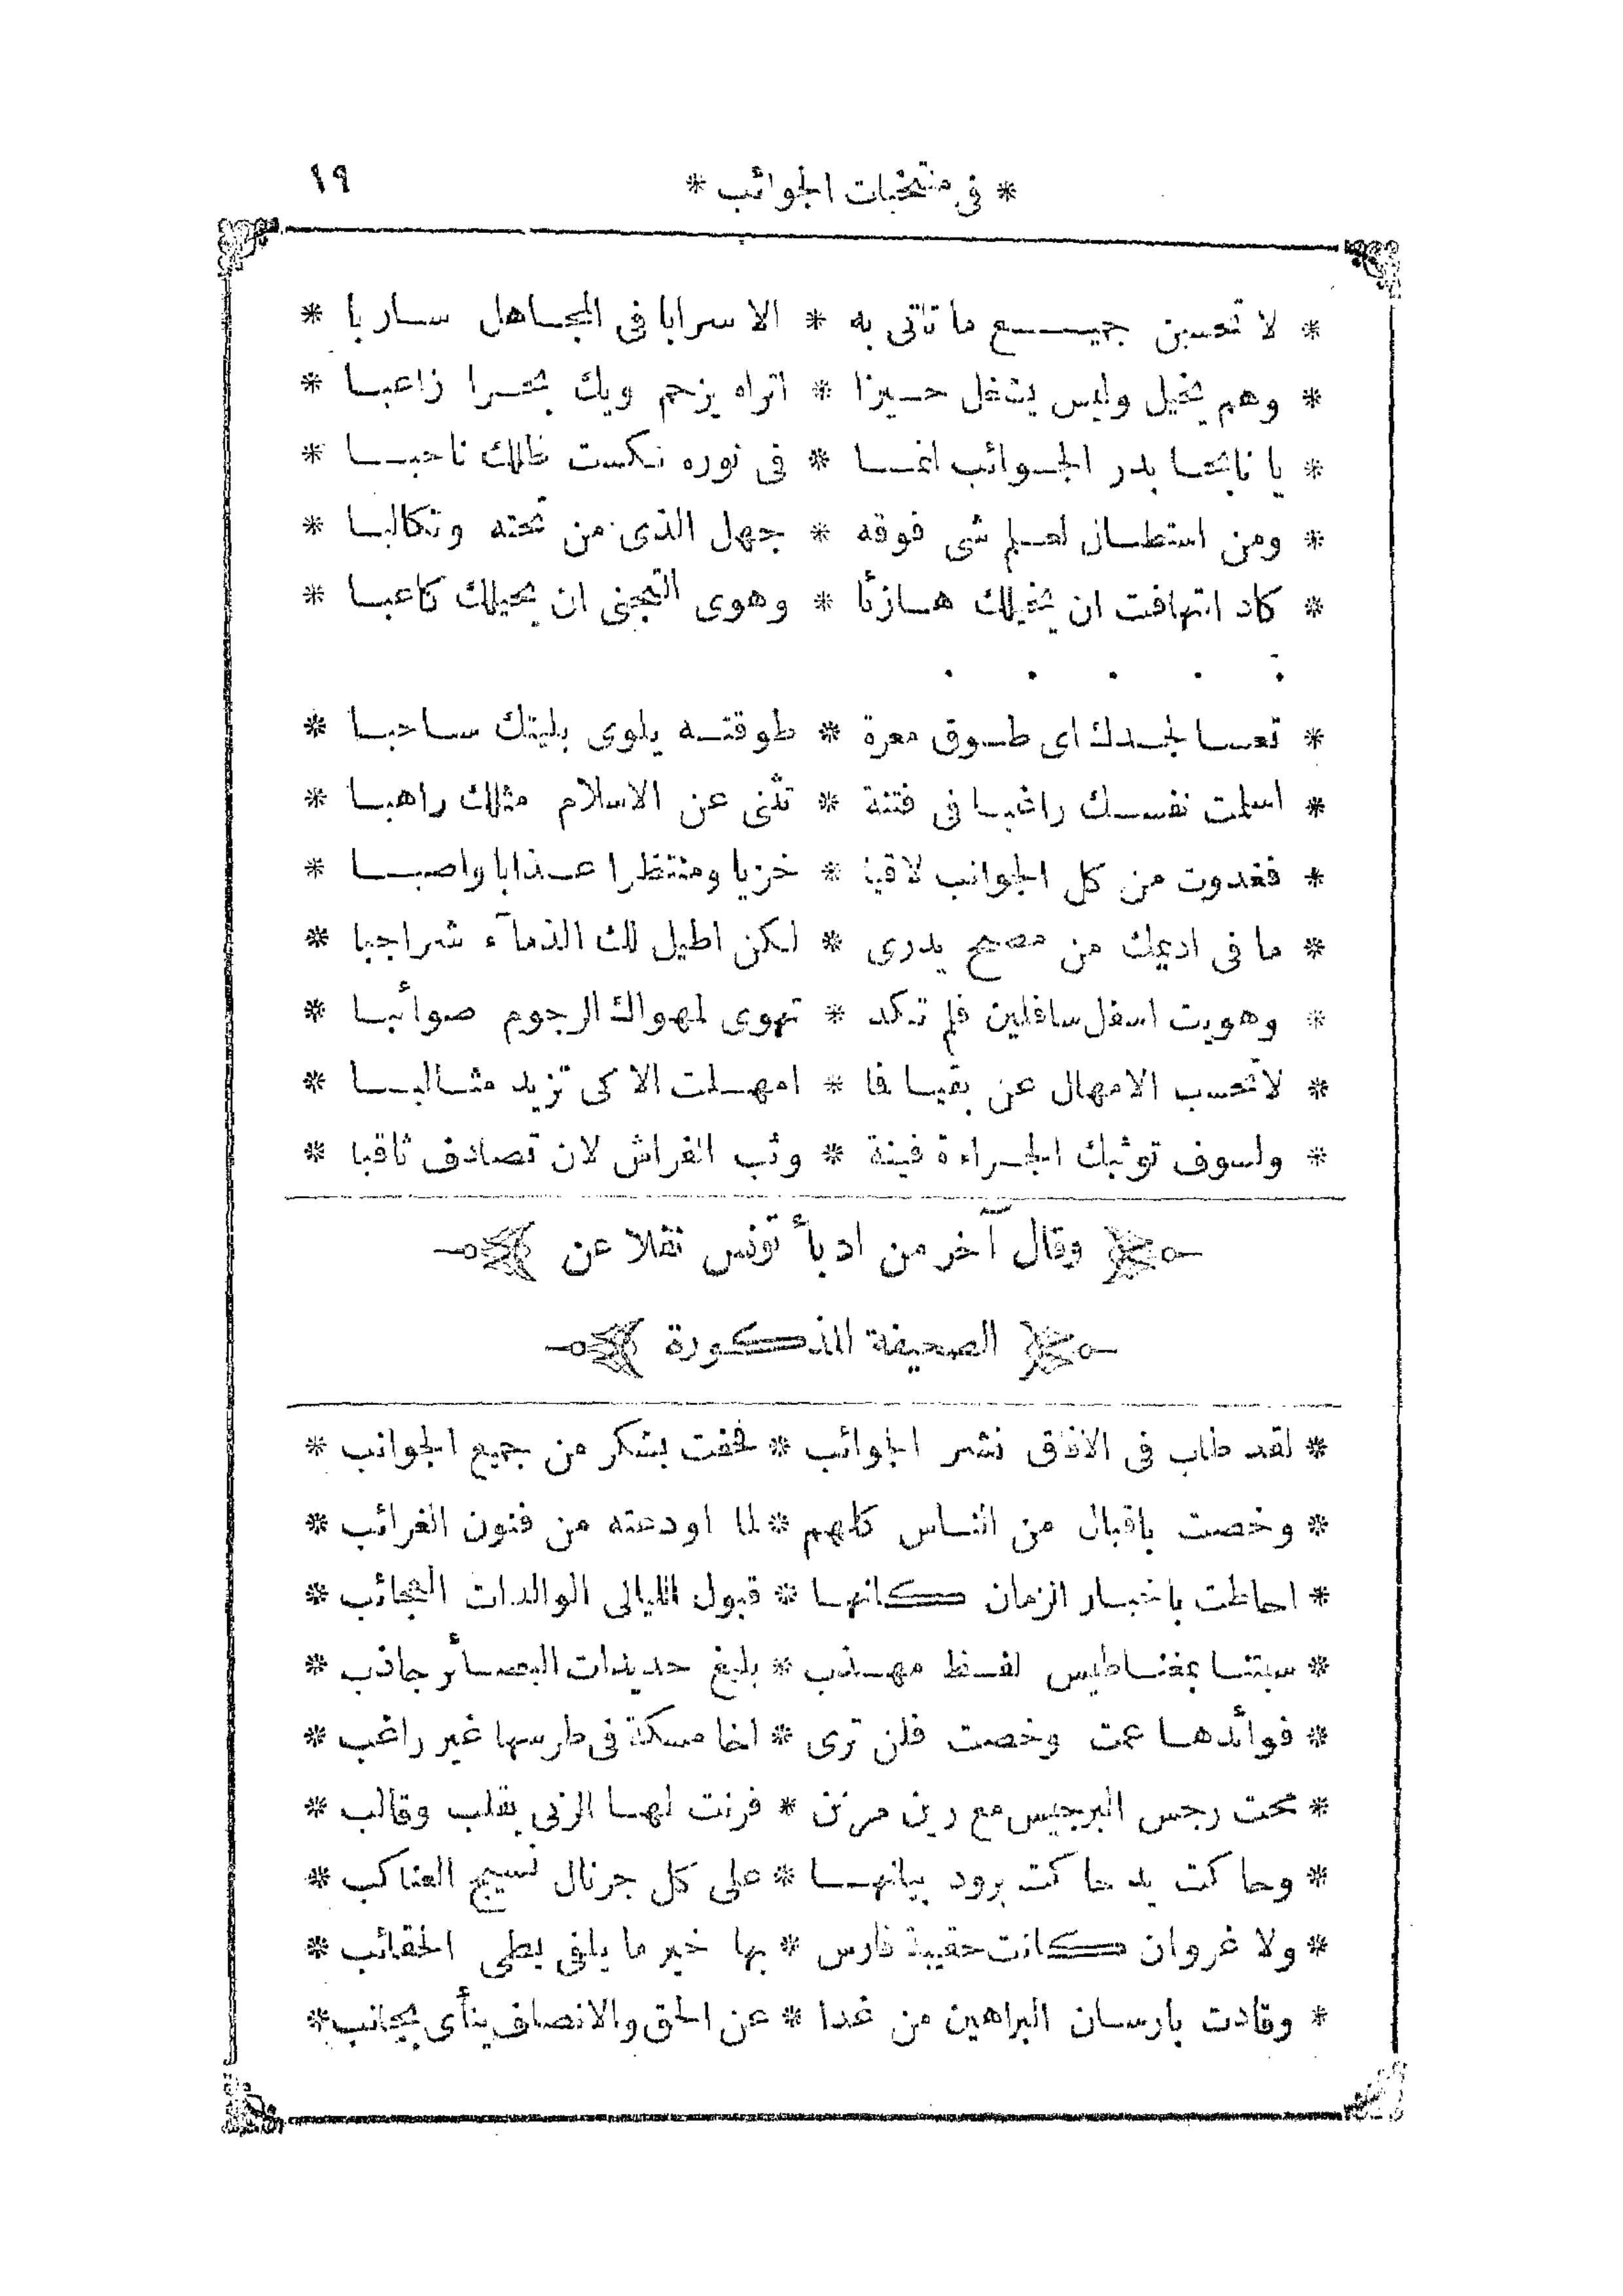 * في منتخبات الجوائب * ١٩
* لا تحسبن جميع ما تاتى به * الا سرابا فى المجاهل ساربا *
* وهم يخيل وليس يشغل حيزا * اتراه يزحم ويك بحرا زاعبا *
* يا نابحا بدر الجوائب انما * فى نوره نكست ظلك ناحبا *
* ومن استطال لعلم شى فوقه * جهل الذى من تحته وتكالبا *
* كاد التهافت ان يخيلك هازئا * وهوى التجنى ان يحيلك كاعبا *
. . . . .
* تعسا لجدك اى طوق معرة * طوقته يلوى بليتك ساحبا *
* اسلمت نفسك راغبا فى فتنة * تثنى عن الاسلام مثلك راهبا *
* فغدوت من كل الجوانب لاقيا * خزيا ومنتظرا عذابا واصبا *
* ما فى اديمك من مصح يدرى * لكن اطيل لك الذمآء شراجبا *
* وهويت اسفل سافلين فلم تكد * تهوى لمهواك الرجوم صوائبا *
* لا تحسب الامهال عن بقيا فا * امهلت الا كى تزيد مثالبا *
* ولسوف توثبك الجراءة فينة * وثب الفراش لان تصادف ثاقبا *
وقال آخر من ادبأ تونس نقلا عن
الصحيفة المذكورة
* لقد طاب فى الافاق نشر الجوائب * فحفت بشكر من جميع الجوانب *
* وخصت باقبال من الناس كلهم * لما اودعته من فنون الغرائب *
* احاطت باخبار الزمان كانها * قبول الليالى الوالدات العجائب *
* سبتنا بمغناطيس لفظ مهذب * بليغ حديدات البصائر جاذب *
* فوائدها عمت وخصت فلن ترى * اخا مسكة فى طرسها غير راغب *
* محت رجس البرجيس مع رين مرنن * فرنت لها الزبى بقلب وقالب *
* وحاكت يد حاكت برود بيانها * على كل جرنال نسيج العناكب *
* ولا غروان كانت حقيبة فارس * بها خير ما يلفى بطى الحقائب *
* وقادت بارسان البراهين من غدا * عن الحق والانصاف ينأى بجانب *